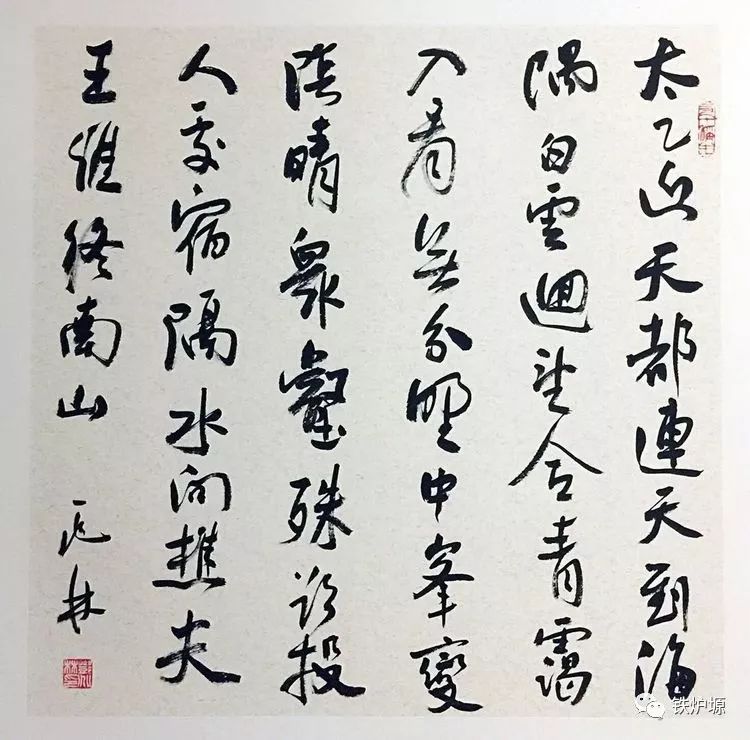 太乙近天都連天到海
隅白雲迴望合青靄
入看無分野中峯變
陰晴衆壑殊欲投
人處宿隔水問樵夫
王維終南山 林
铁炉塬